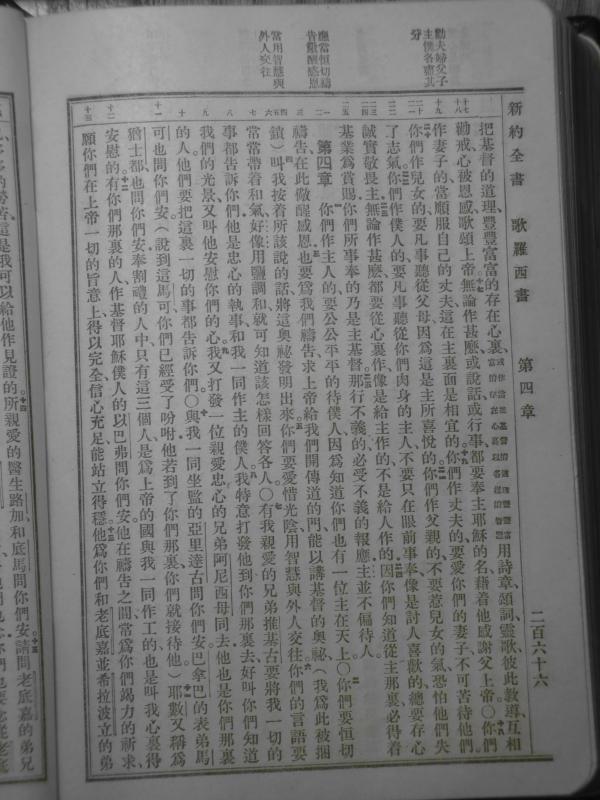 新約全書 歌羅西書 第四章 二百六十六
勸夫婦父子
主僕各盡其
分
應當恒切禱
告儆醒感恩
當用智慧與
外人交往
把基督的道理豐豐富富的存在心裏用詩章頌詞靈歌彼此教導互相
勸戒心被恩感歌頌上帝無論作甚麽或說話或行事都要奉主耶穌的名藉着他感謝父上帝○你們
作妻子的當順服自己的丈夫這在主裏面是相宜的你們作丈夫的要愛你們的妻子不可苦待他們
你們作兒女的要凡事聽從父母因爲這是主所喜悅的你們作父親的不要惹兒女的氣恐怕他們失
了志氣你們作僕人的要凡事聽從你們肉身的主人不要只在眼前事奉像是討人喜歡的總要存心
誠實敬畏主無論作甚麽都要從心裏作像是給主作的不是給人作的因你們知道從主那裏必得着
基業爲賞賜你們所事奉的乃是主基督那行不義的必受不義的報應主並不偏待人
第四章 你們作主人的要公公平平的待僕人因爲知道你們也有一位主在天上○你們要恒切
禱告在此儆醒感恩也要爲我們禱告求上帝給我們開傳道的門能以講基督的奧祕(我爲此被捆
鎖)叫我按着所該說的話將這奧祕發明出來你們要愛惜光陰用智慧與外人交往你們的言語要
常常帶着和氣好像用鹽調和就可知道該怎樣回答各人○有我親愛的兄弟推基古要將我一切的
事都告訴你們他是忠心的執事和我一同作主的僕人我特意打發他到你們那裏去好叫你們知道
我們的光景又叫他安慰你們的心我又打發一位親愛忠心的兄弟阿尼西母同去他也是你們那裏
的人他們要把這裏一切的事都告訴你們○與我一同坐監的亞里達古問你們安巴拿巴的表弟馬
可也問你們安(說到這馬可你們已經受了吩咐他若到了你們那裏你們就接待他)耶數又稱爲
猶士都也問你們安奉割禮的人中只有這三個人是爲上帝的國與我一同作工的也是叫我心裏得
安慰的有你們那裏的人作基督耶穌僕人的以巴弗問你們安他在禱告之間常爲你們竭力的祈求
願你們在上帝一切的旨意上得以完全信心充足能站立得穩他爲你們和老底嘉並希拉波立的弟
這是我可以給他作見證的所親愛的醫生路加和底馬問你們安請問老底嘉的弟兄